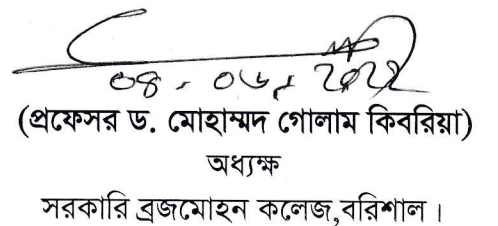 ০৪.০৬.২০২২
(প্রফেসর ড. মোহাম্মদ গোলাম কিবরিয়া)
অধ্যক্ষ
সরকারি ব্রজমোহন কলেজ,বরিশাল।